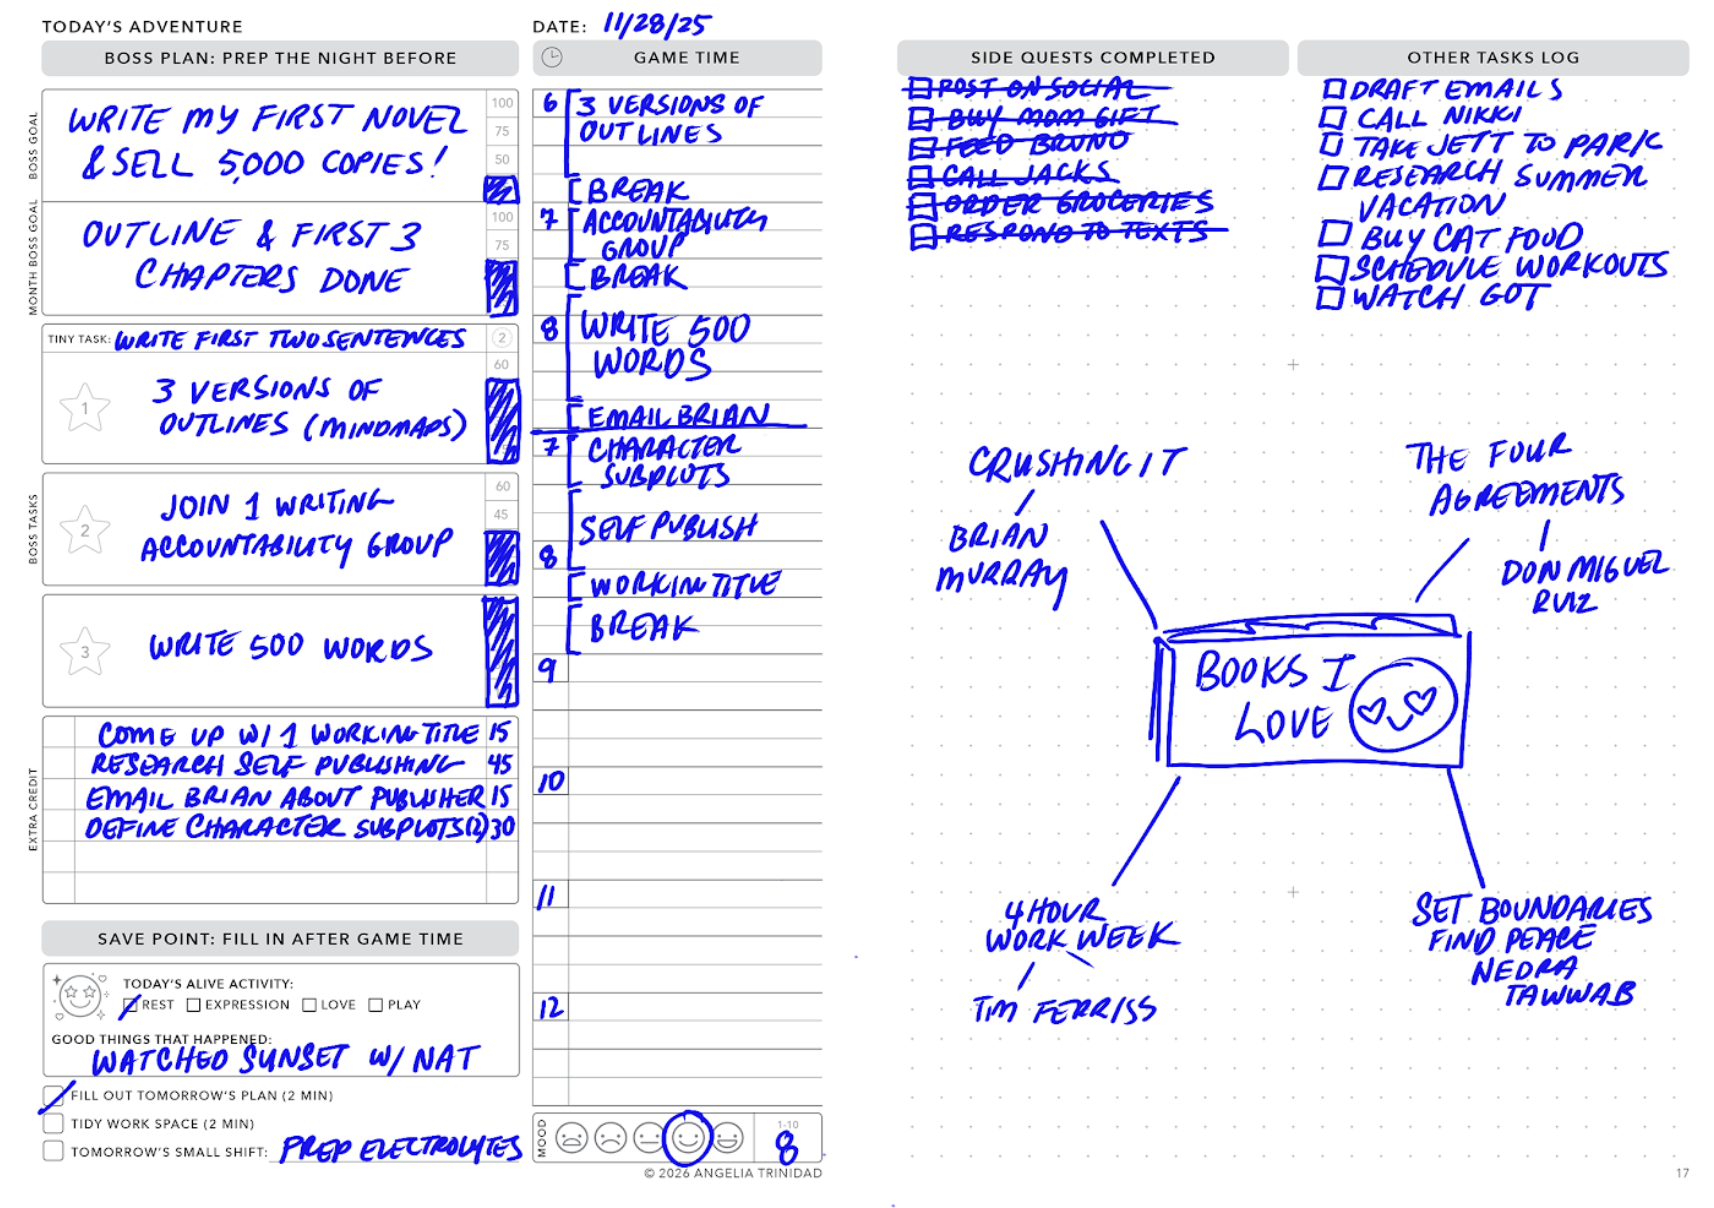 TODAY'S ADVENTURE
BOSS PLAN: PREP THE NIGHT BEFORE
BOSS GOAL
WRITE MY FIRST NOVEL
& SELL 5,000 COPIES!
100
75
50
MONTH BOSS GOAL
OUTLINE & FIRST 3
CHAPTERS DONE
100
75
TINY TASK: WRITE FIRST TWO SENTENCES 2
BOSS TASKS
1
3 VERSIONS OF
OUTLINES (MINDMAPS)
60
2
JOIN 1 WRITING
ACCOUNTABILITY GROUP
60
45
3
WRITE 500 WORDS
EXTRA CREDIT
COME UP W/ 1 WORKING TITLE 15
RESEARCH SELF PUBLISHING 45
EMAIL BRIAN ABOUT PUBLISHER 15
DEFINE CHARACTER SUBPLOTS (2) 30
SAVE POINT: FILL IN AFTER GAME TIME
TODAY'S ALIVE ACTIVITY:
REST EXPRESSION LOVE PLAY
GOOD THINGS THAT HAPPENED:
WATCHED SUNSET W/ NAT
FILL OUT TOMORROW'S PLAN (2 MIN)
TIDY WORK SPACE (2 MIN)
TOMORROW'S SMALL SHIFT: PREP ELECTROLYTES
DATE: 11/28/25
GAME TIME
6 3 VERSIONS OF
OUTLINES
BREAK
7 ACCOUNTABILITY
GROUP
BREAK
8 WRITE 500
WORDS
EMAIL BRIAN
7 CHARACTER
SUBPLOTS
SELF PUBLISH
8
WORKING TITLE
BREAK
9
10
11
12
MOOD
1-10
8
© 2026 ANGELIA TRINIDAD
SIDE QUESTS COMPLETED
POST ON SOCIAL
BUY MOM GIFT
FEED BRUNO
CALL JACKS
ORDER GROCERIES
RESPOND TO TEXTS
OTHER TASKS LOG
DRAFT EMAILS
CALL NIKKI
TAKE JETT TO PARK
RESEARCH SUMMER
VACATION
BUY CAT FOOD
SCHEDULE WORKOUTS
WATCH GOT
CRUSHING IT
BRIAN
MURRAY
THE FOUR
AGREEMENTS
DON MIGUEL
RUIZ
BOOKS I
LOVE
4 HOUR
WORK WEEK
TIM FERRISS
SET BOUNDARIES
FIND PEACE
NEDRA
TAWWAB
17